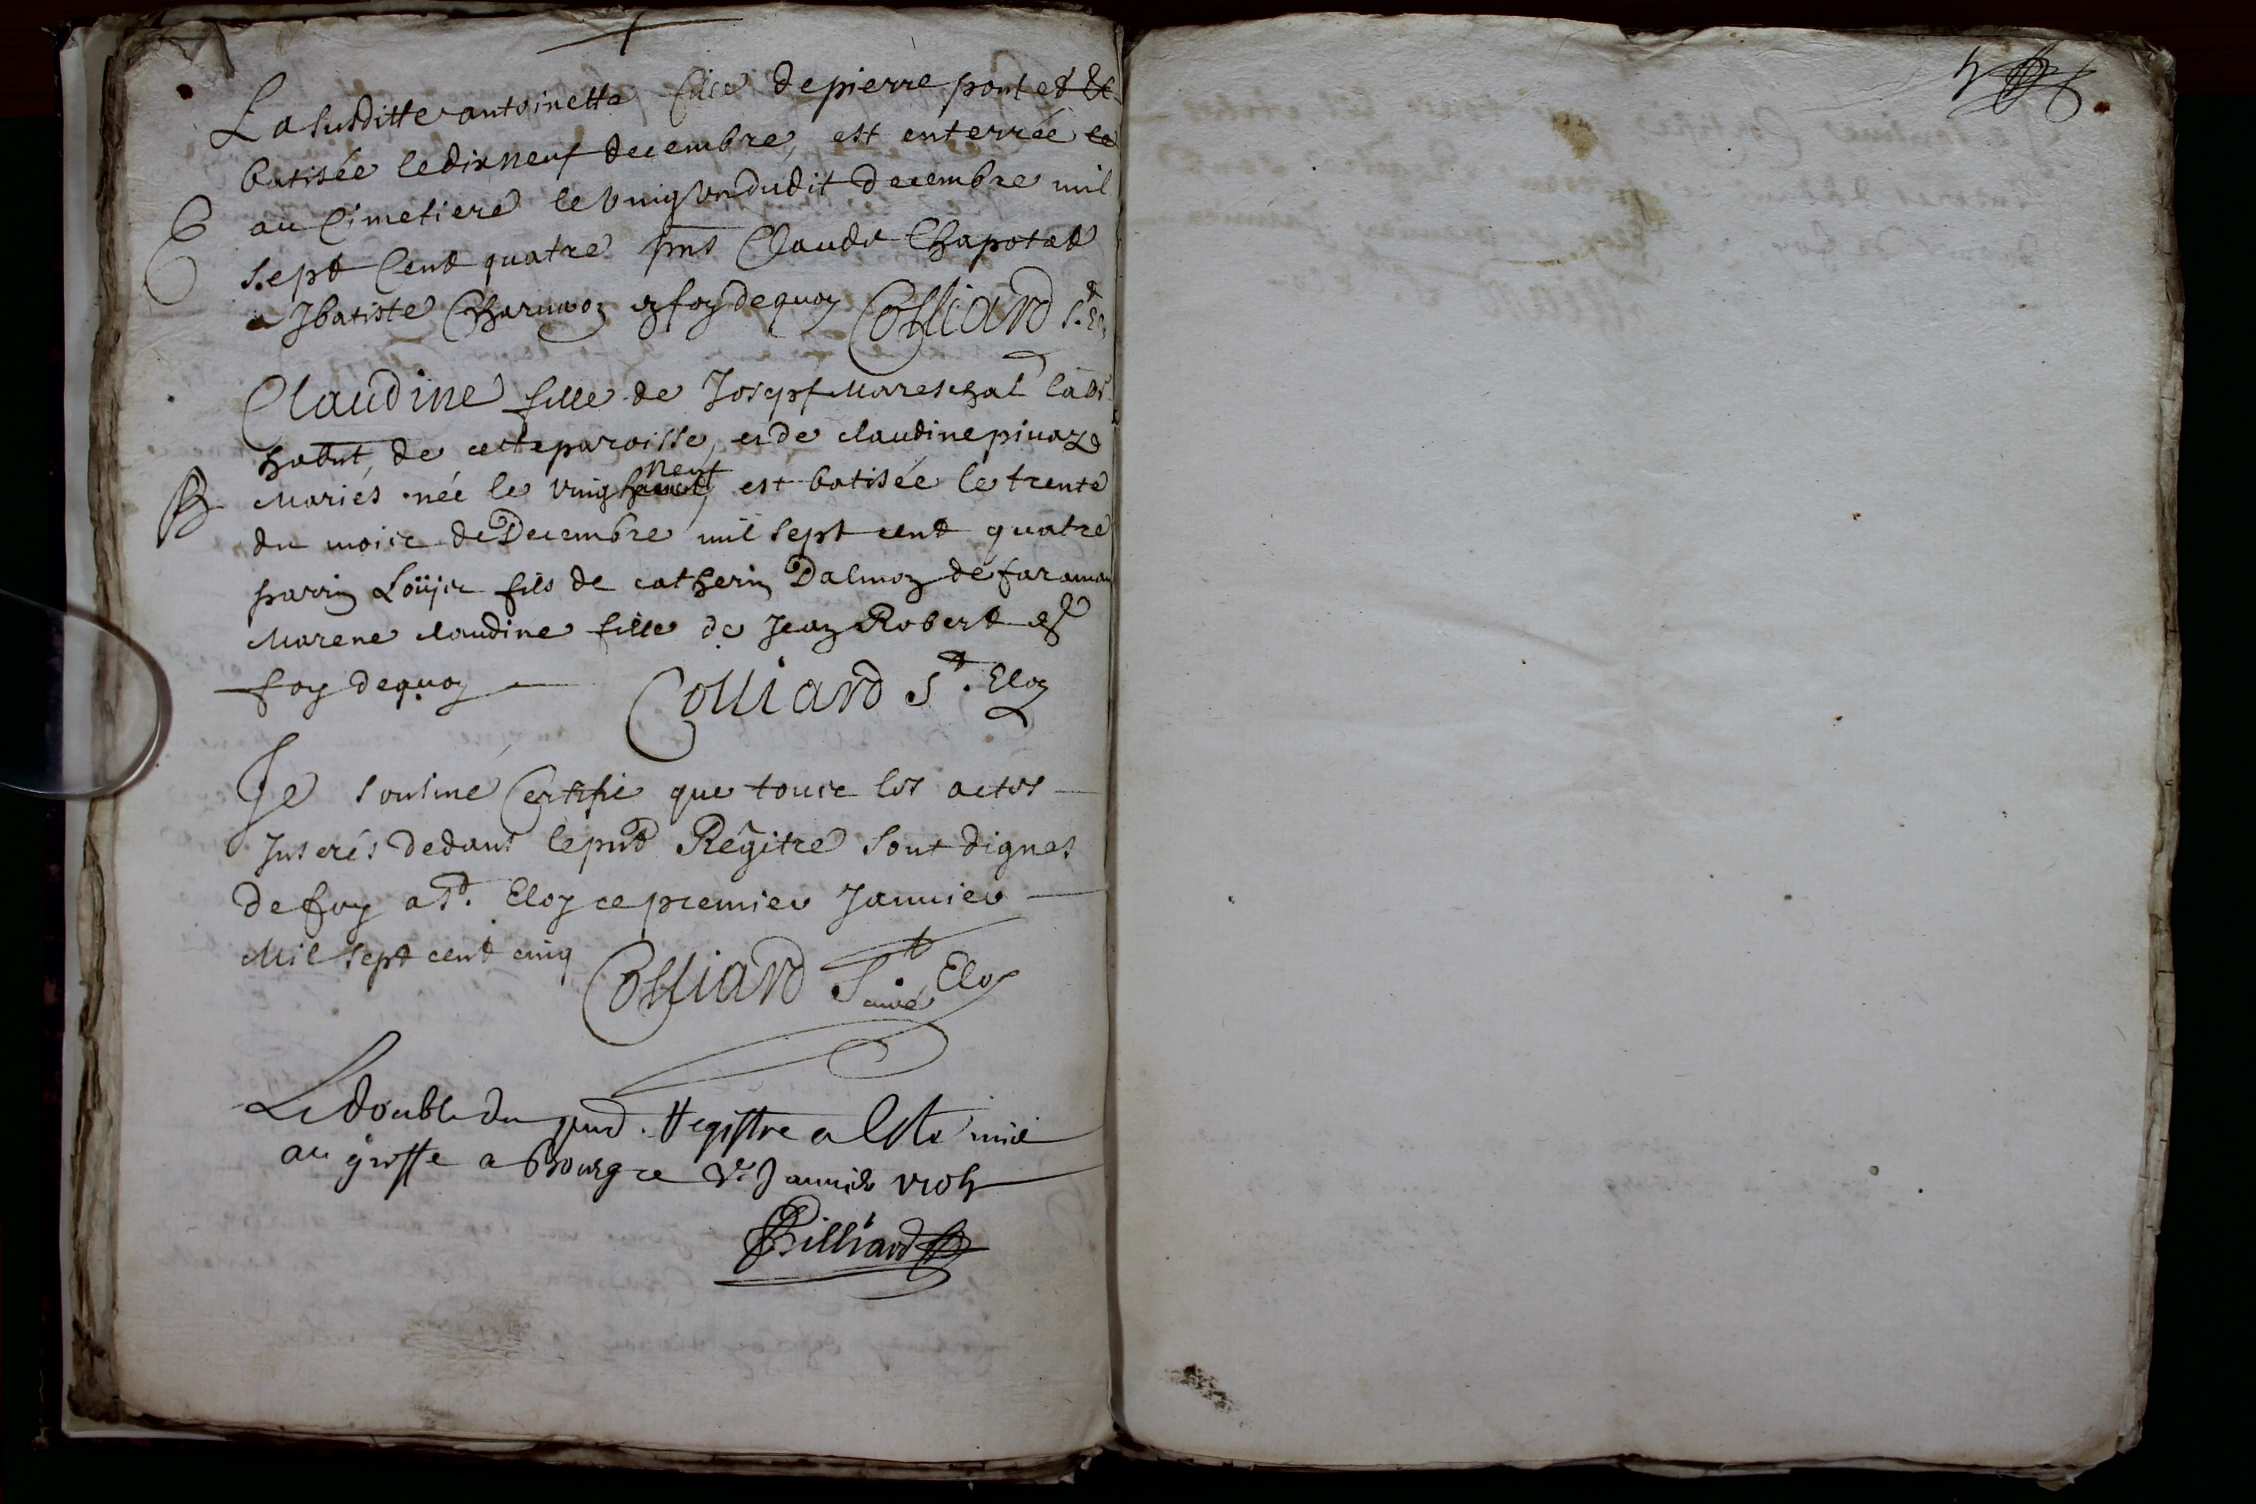 La susditte antoinette fille de pierre pontet &c
batisée le dix neuf decembre, est enterrée
E au Cimetiere le vingt un dudit Decembre mil
sept Cent quatre pnts Claude Chapotat
Jbatiste Charnoz en foy de quoy Colliard St. El
Claudine fille de Joseph Mareschal labr
habnt, de cette paroisse, et de claudine pivaz
B Mariés née le vingt neuf, est batisée le trente
du moiie de Decembre mil sept cent quatre
parrin Loüjie fils de catherin Dalmoz de faraman
Marene claudine fille de Jean Robert en
foy de quoy Colliard St. Eloy
Je sousiné Certifie que touie les actes
Inserés dedans le pnt Régitre sont dignes
de foy a St. Eloy ce premier Janvier
Mil sept cent cinq Colliard curé St. Eloy
Le double du pnt. Registre a esté mie
au greffe a Bourg ce Janvier 1705
Billiard
5